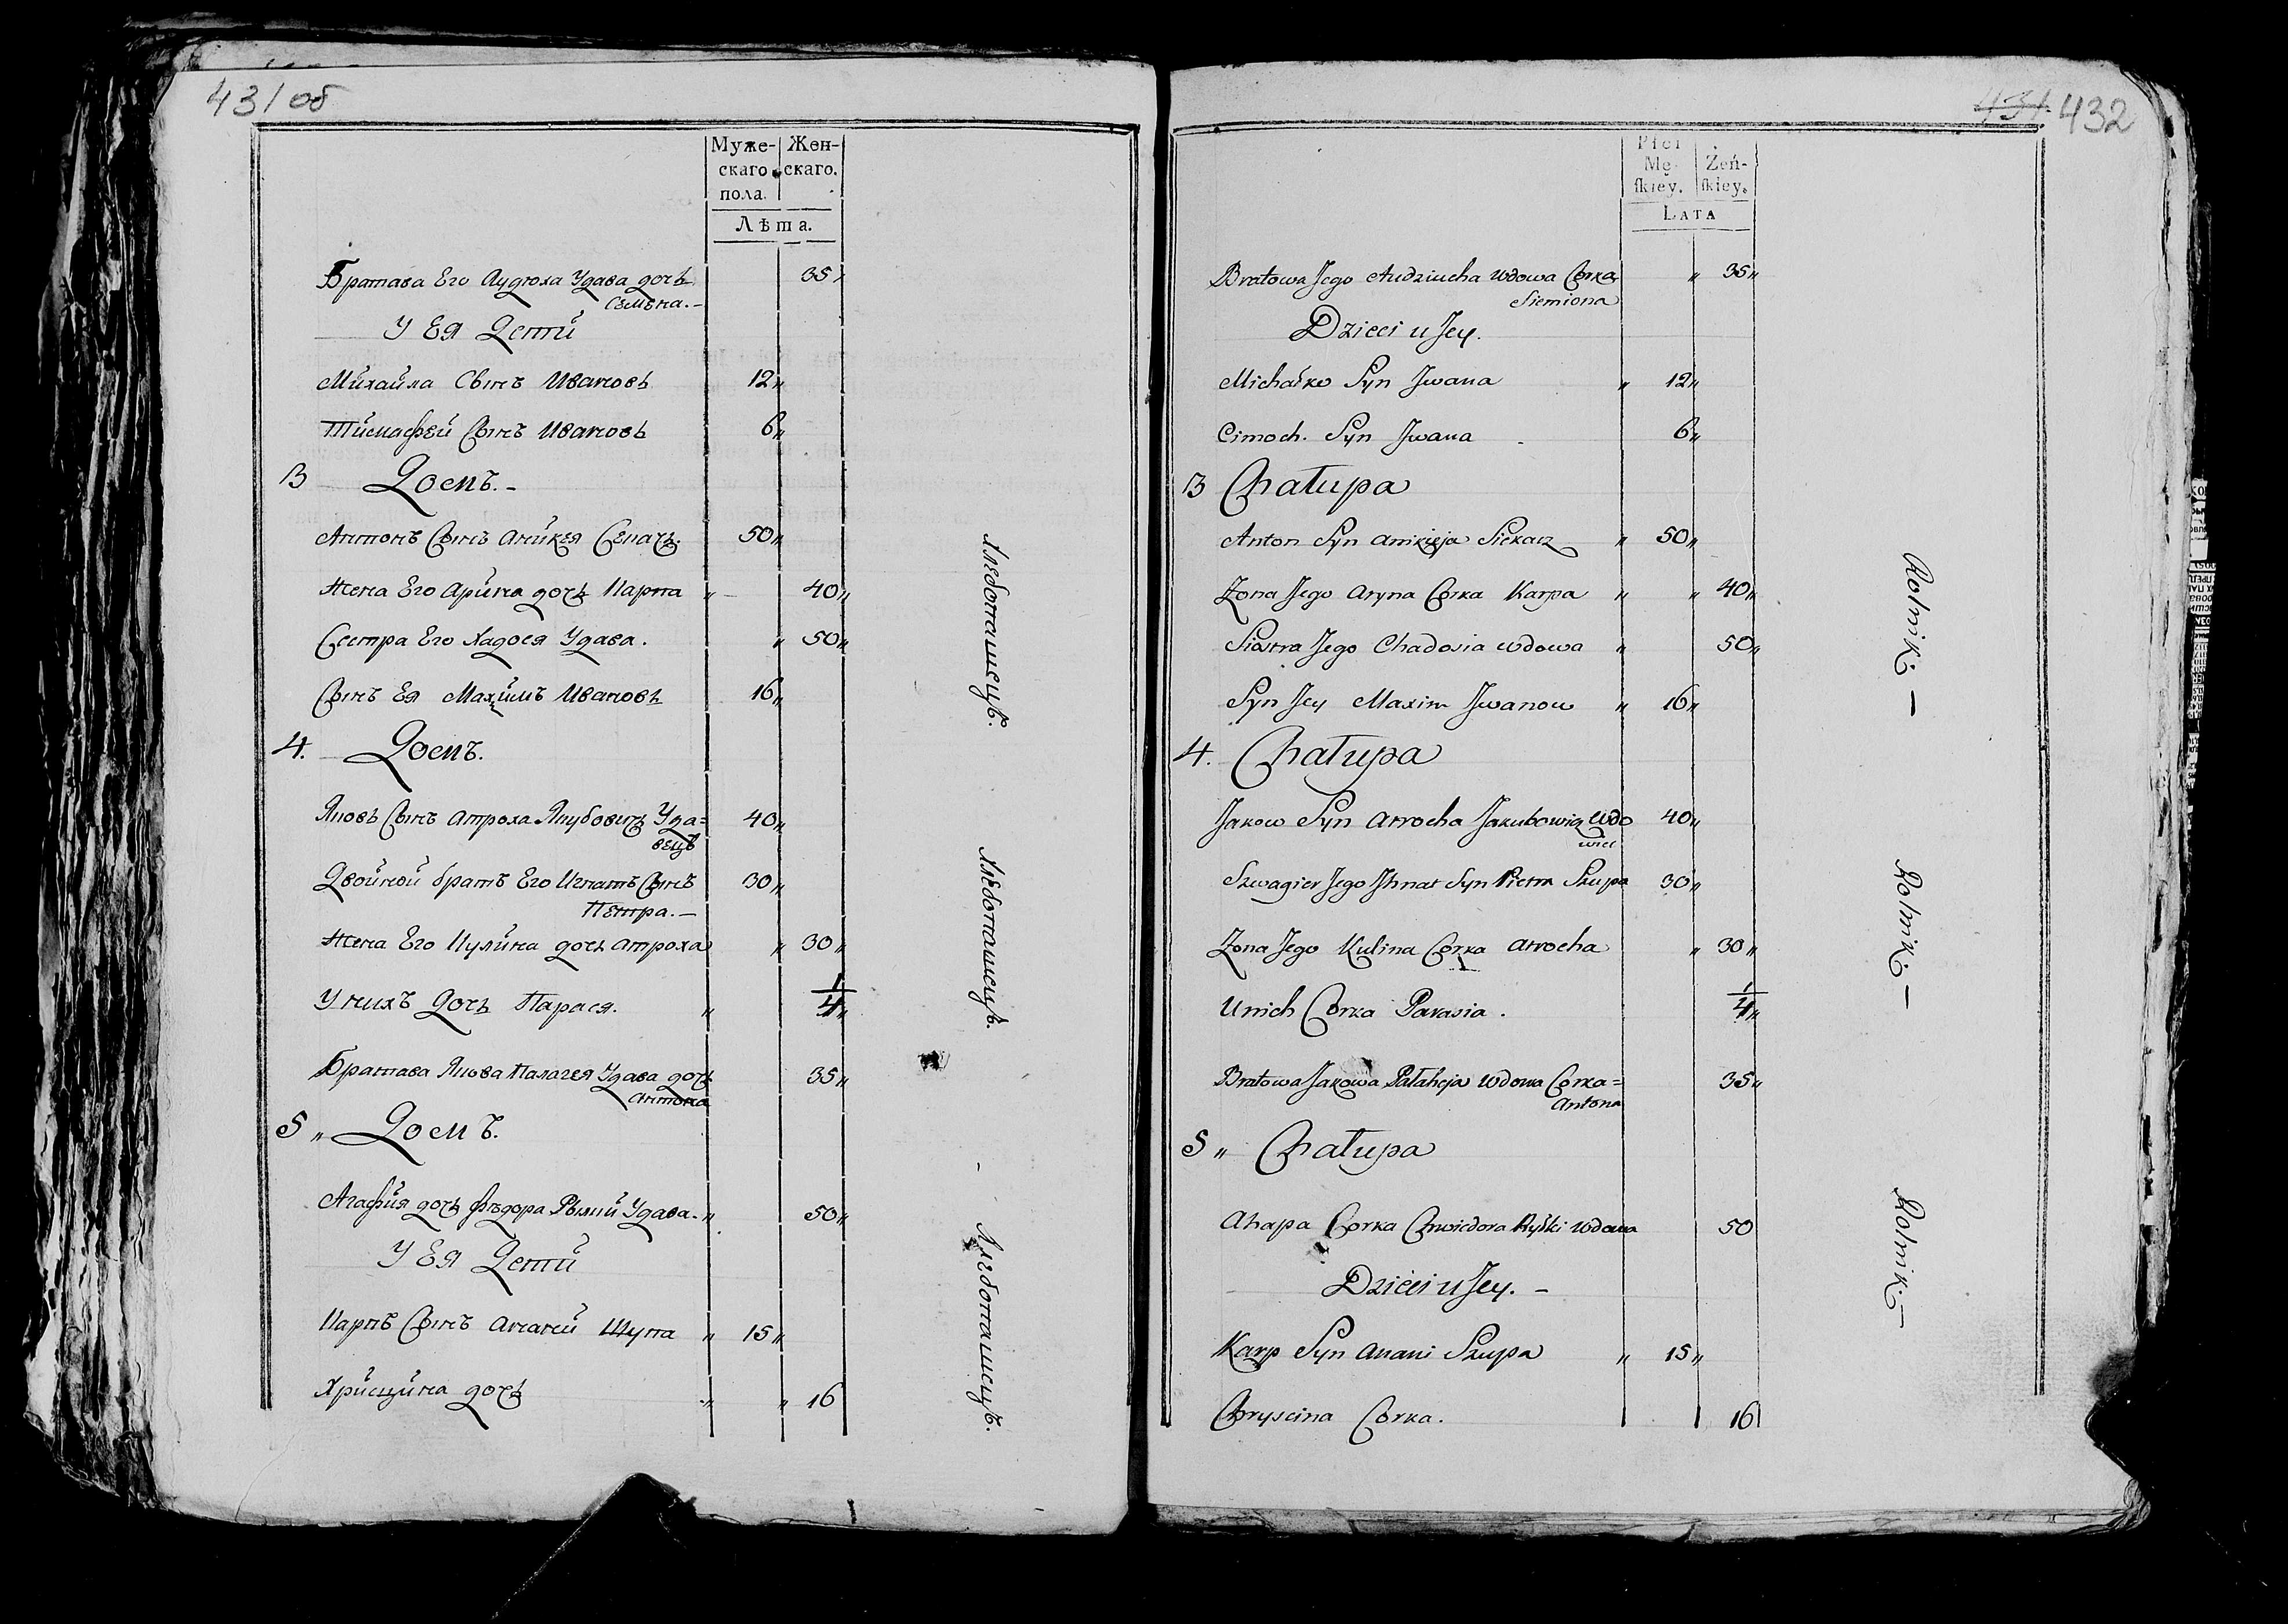 431 об
Муже-
скаго
пола.
Жен-
скаго.
Лѣта.
Братава Его Аудюха Удава дочь 35
Семена. -
У Ея Дети
Михайла Сынъ Ивановъ 12 „
Тимафей Сынъ Ивановъ 6 „
3 Домъ. -
Антонъ Сынъ Аникея Секачъ. 50 „
Жена Его Арина дочь Карпа „ 40 „
Сестра Его Хадося Удава. „ 50 „
Сынъ Ея Махцимъ Ивановъ 16 „
4. Домъ.
Яковъ Сынъ Атроха Якубовичъ Уда= 40 „
вецъ
Двойной братъ Его Игнатъ Сынъ 30 „
Петра. -
Жена Его Кулина дочь Атроха „ 30 „
У нихъ Дочь Парася. „ 1/4 „
Братава Якова Палагея Удава дочь 35 „
Антона
5 „ Домъ.
Агафия дочь Фѣдора Удава. „ 50 „
У Ея Дети
Карпъ Сынъ Анании Шупа „ 15 „
Хрисцина дочь „ „ 16
Хлебопашецъ.
Хлебопашецъ.
Хлебопашецъ.
431 432
Płci
Mę-
ſkiey.
Żeń-
ſkiey.
LATA
Bratowa Jego Audziucha Wdowa Corka „ 35 „
Siemiona
Dzieci u Jey.
Michałko Syn Jwana „ 12 „
Cimoch. Syn Jwana 6 „
3 Chałupa
Anton Syn Anikieja Siekacz „ 50 „
Zona Jego Aryna Corka Karpa „ „ 40 „
Siostra Jego Chadosia Wdowa „ 50 „
Syn Jey Maxim Jwanow „ 16 „
4. Chałupa
Jakow Syn Atrocha Jakubowicz Wdo 40 „
wiec
Szwagier Jego Jhnat Syn Pietra Szupa 30 „
Zona Jego Kulina Corka Atrocha „ 30 „
U nich Corka Parasia. 1/4 „
Bratowa Jakowa Pałaheja Wdowa Corka= 35 „
Antona
5 „ Chałupa
Ahapa Corka Chwiedora Wdowa 50
Dzieci u Jey. -
Karp Syn Anani Szupa „ 15 „
Chryscina Corka. 16
Rolnik. -
Rolnik. -
Rolnik. -